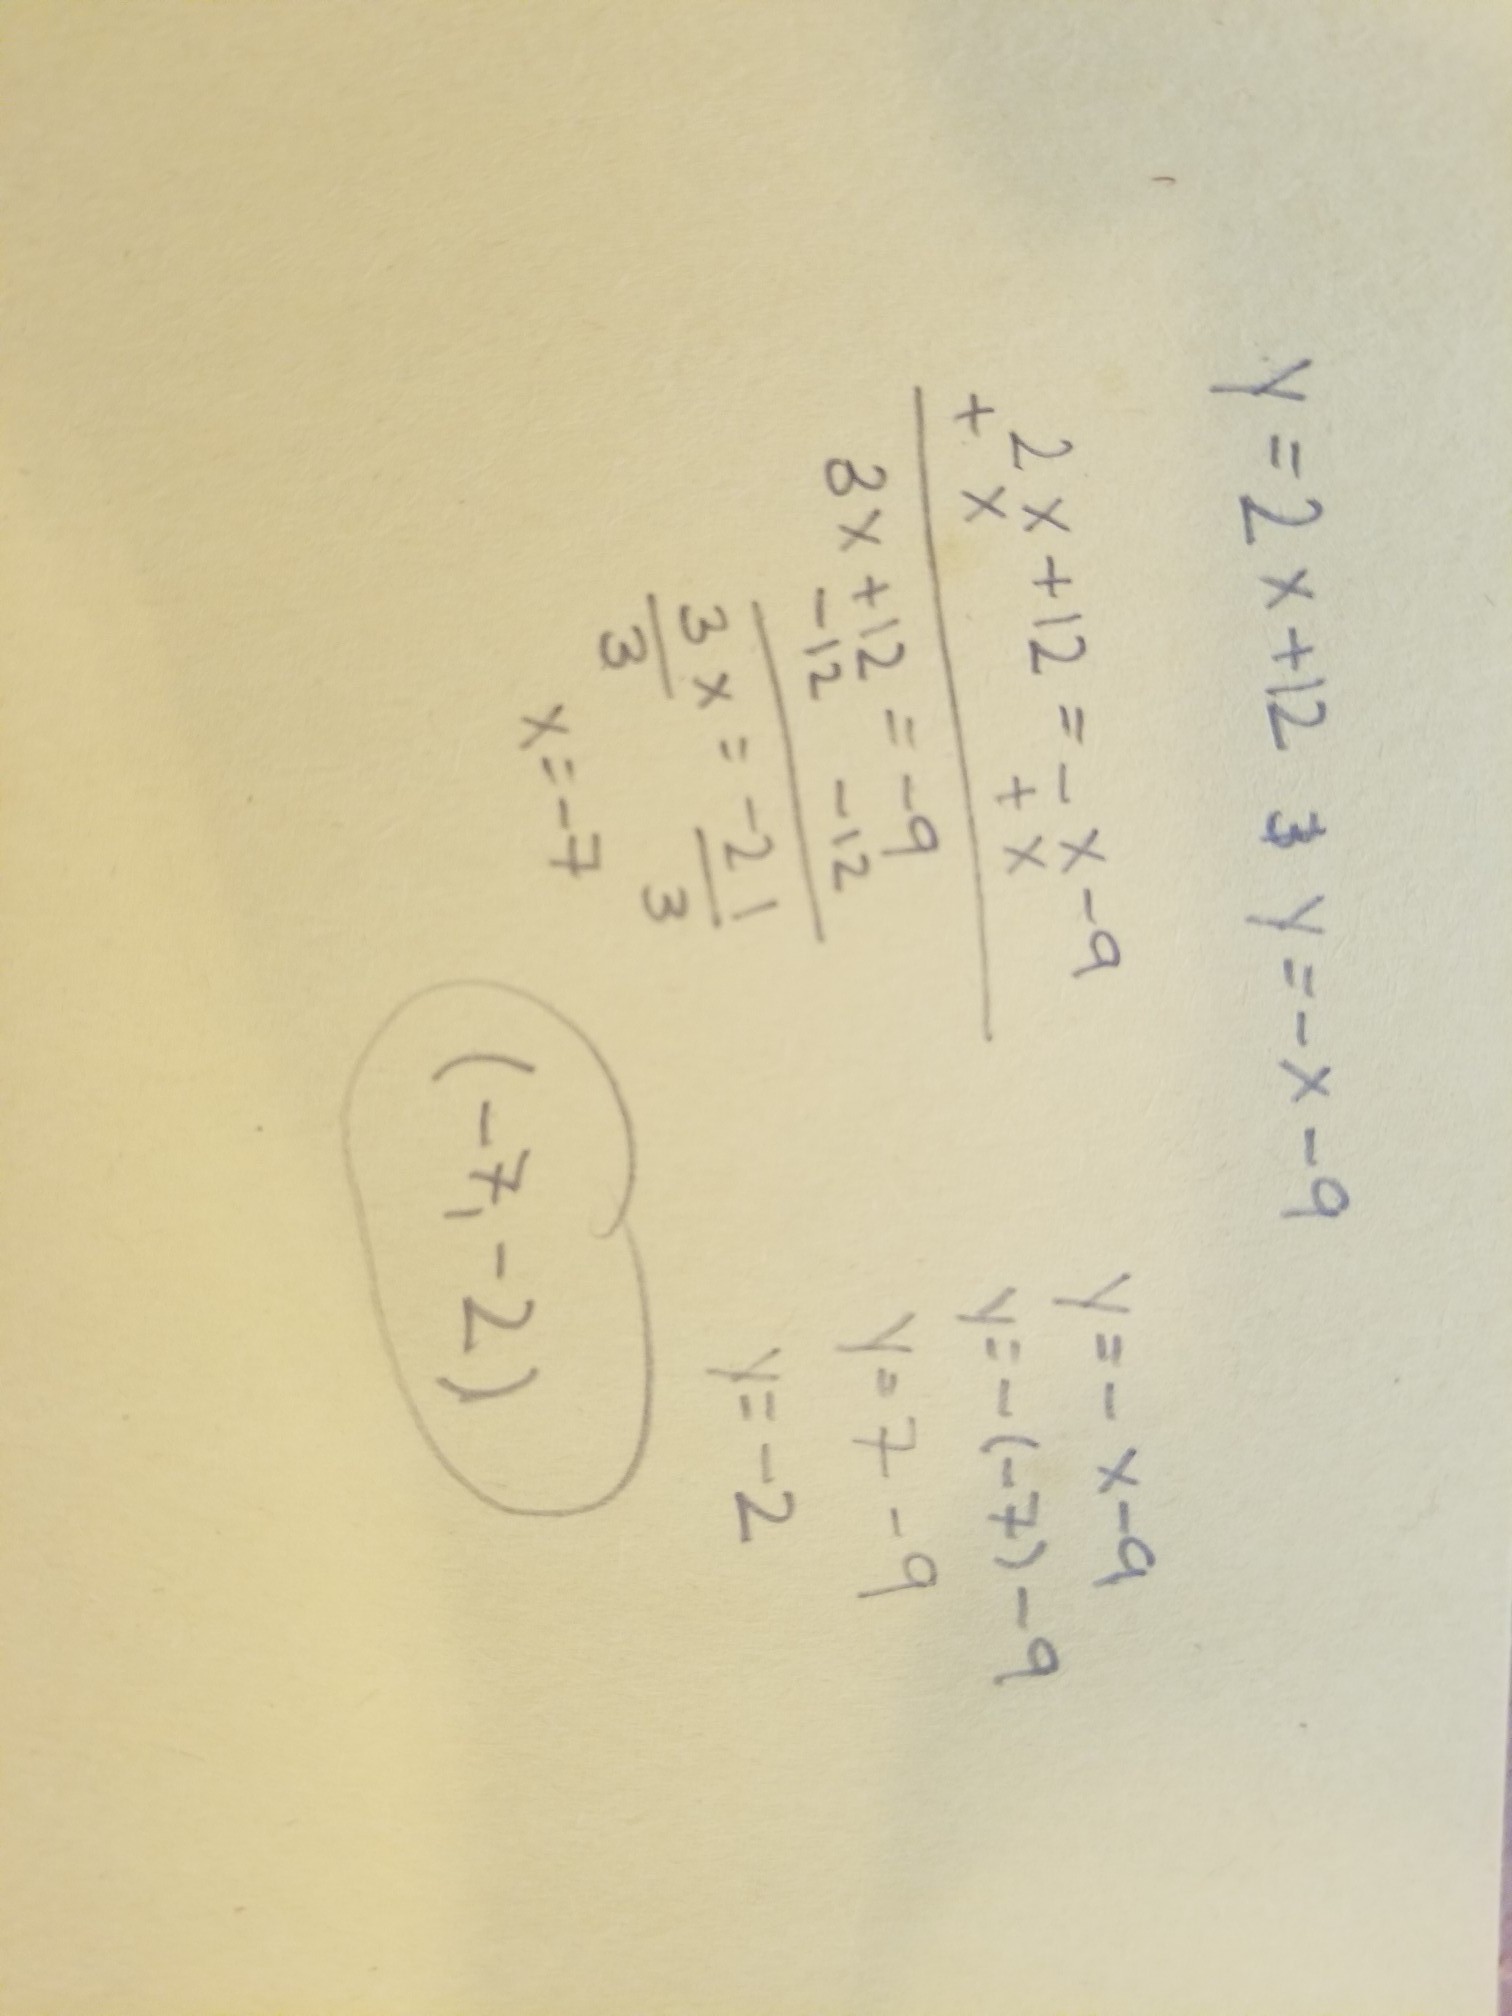 y = 2x + 12 & y = -x - 9
2x + 12 = -x - 9
+x +x
3x + 12 = -9
-12 -12
3x = -21
3 3
x = -7
y = -x - 9
y = -(-7) - 9
y = 7 - 9
y = -2
(-7, -2)